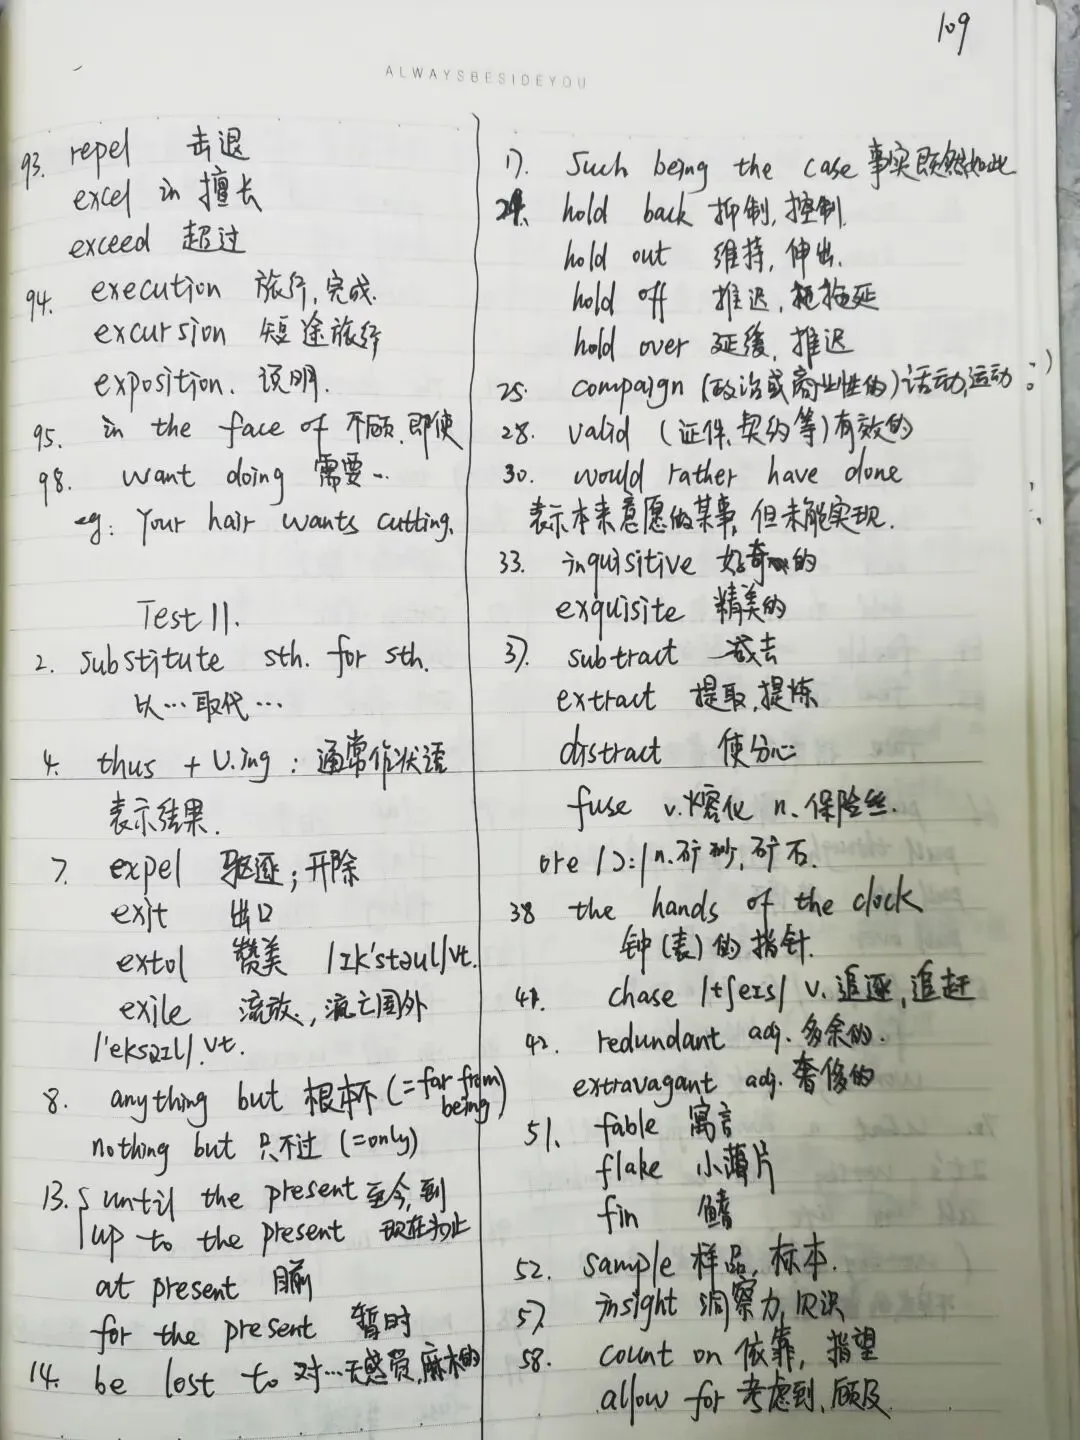 109
ALWAYSBESIDEYOU
93. repel 击退
excel in 擅长
exceed 超过
94. execution 旅行, 完成.
excursion 短途旅行
exposition. 说明.
95. in the face of 不顾, 即使
98. want doing 需要…
eg: Your hair wants cutting.
Test 11.
2. substitute sth. for sth.
以…取代…
4. thus + V.ing : 通常作状语
表示结果.
7. expel 驱逐; 开除
exit 出口
extol 赞美 /ɪk'stəul/ vt.
exile 流放, 流亡国外
/'eksaɪl/. vt.
8. anything but 根本不 (=far from being)
nothing but 只不过 (=only)
13. { until the present 至今, 到
up to the present 现在为止
at present 目前
for the present 暂时
14. be lost to 对…无感觉, 麻木的
17. Such being the case 事实既然如此
24. hold back 抑制, 控制.
hold out 维持, 伸出.
hold off 推迟, 拖延
hold over 延後, 推迟
25. compaign (政治或商业性的) 活动, 运动
28. valid (证件、契约等) 有效的
30. would rather have done
表示本来意愿做某事, 但未能实现.
33. inquisitive 好奇的
exquisite 精美的
37. subtract 减去
extract 提取, 提炼
distract 使分心
fuse v. 熔化 n. 保险丝.
ore /ɔ:/ n. 矿砂, 矿石.
38 the hands of the clock
钟(表)的指针.
41. chase /tʃeɪs/ v. 追逐, 追赶
42. redundant adj. 多余的.
extravagant adj. 奢侈的
51. fable 寓言
flake 小薄片
fin 鳍
52. sample 样品, 标本.
57 insight 洞察力, 见识
58. count on 依靠, 指望
allow for 考虑到, 顾及